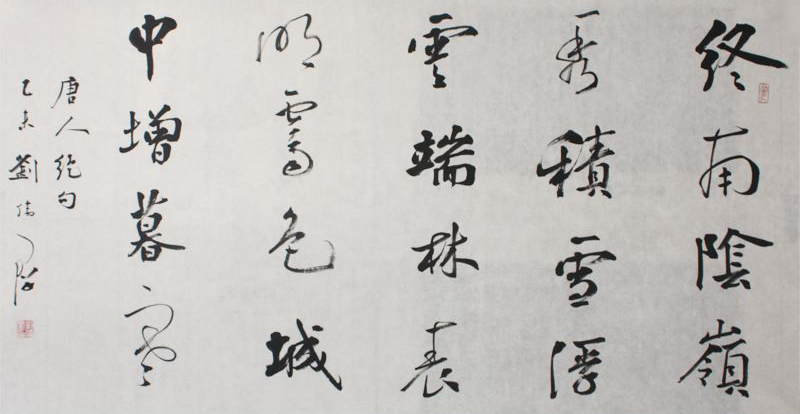 終南陰嶺
秀積雪浮
雲端林表
明霽色城
中增暮寒
唐人絕句
乙未劉